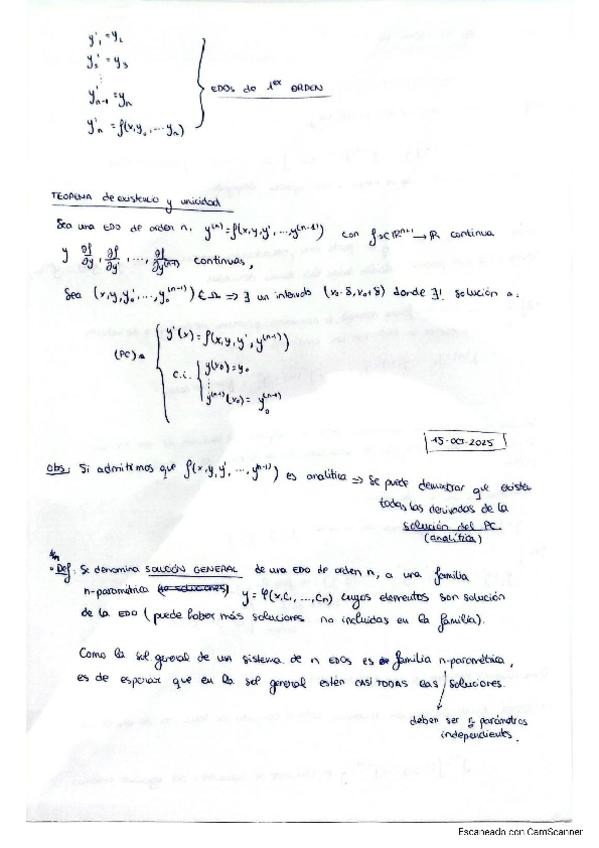 y'₁ = y₂
y'₂ = y₃
⋮
y'ₙ₋₁ = yₙ
y'ₙ = f(x, y₀, ... yₙ)
EDOs de 1er ORDEN
TEOREMA de existencia y unicidad
Sea una EDO de orden n, y⁽ⁿ⁾ = f(x, y, y', ..., y⁽ⁿ⁻¹⁾) con f: Ω⊂ℝⁿ⁺¹ → ℝ continua
y ∂f/∂y, ∂f/∂y', ..., ∂f/∂y⁽ⁿ⁻¹⁾ continuas,
Sea (x, y, y'₀, ..., y₀⁽ⁿ⁻¹⁾) ∈ Ω ⇒ ∃ un intervalo (x₀-δ, x₀+δ) donde ∃! solución a:
(PC) ≡ { y'(x) = f(x, y, y', y⁽ⁿ⁻¹⁾)
c.i. { y(x₀) = y₀
⋮
y⁽ⁿ⁻¹⁾(x₀) = y₀⁽ⁿ⁻¹⁾
15-OCT-2025
Obs: Si admitimos que f(x, y, y', ..., yⁿ⁻¹) es analítica ⇒ Se puede demostrar que exista
todas las derivadas de la
solución del PC.
(analítica)
• Def: Se denomina SOLUCIÓN GENERAL de una EDO de orden n, a una familia
n-paramétrica y = φ(x, C₁, ..., Cn) cuyos elementos son solución
de la EDO (puede haber más soluciones no incluidas en la familia).
Como la sol. general de un sistema de n EDOs es familia n-paramétrica,
es de esperar que en la sol general estén CASI TODAS LAS soluciones.
deben ser parámetros
independientes.
Escaneado con CamScanner